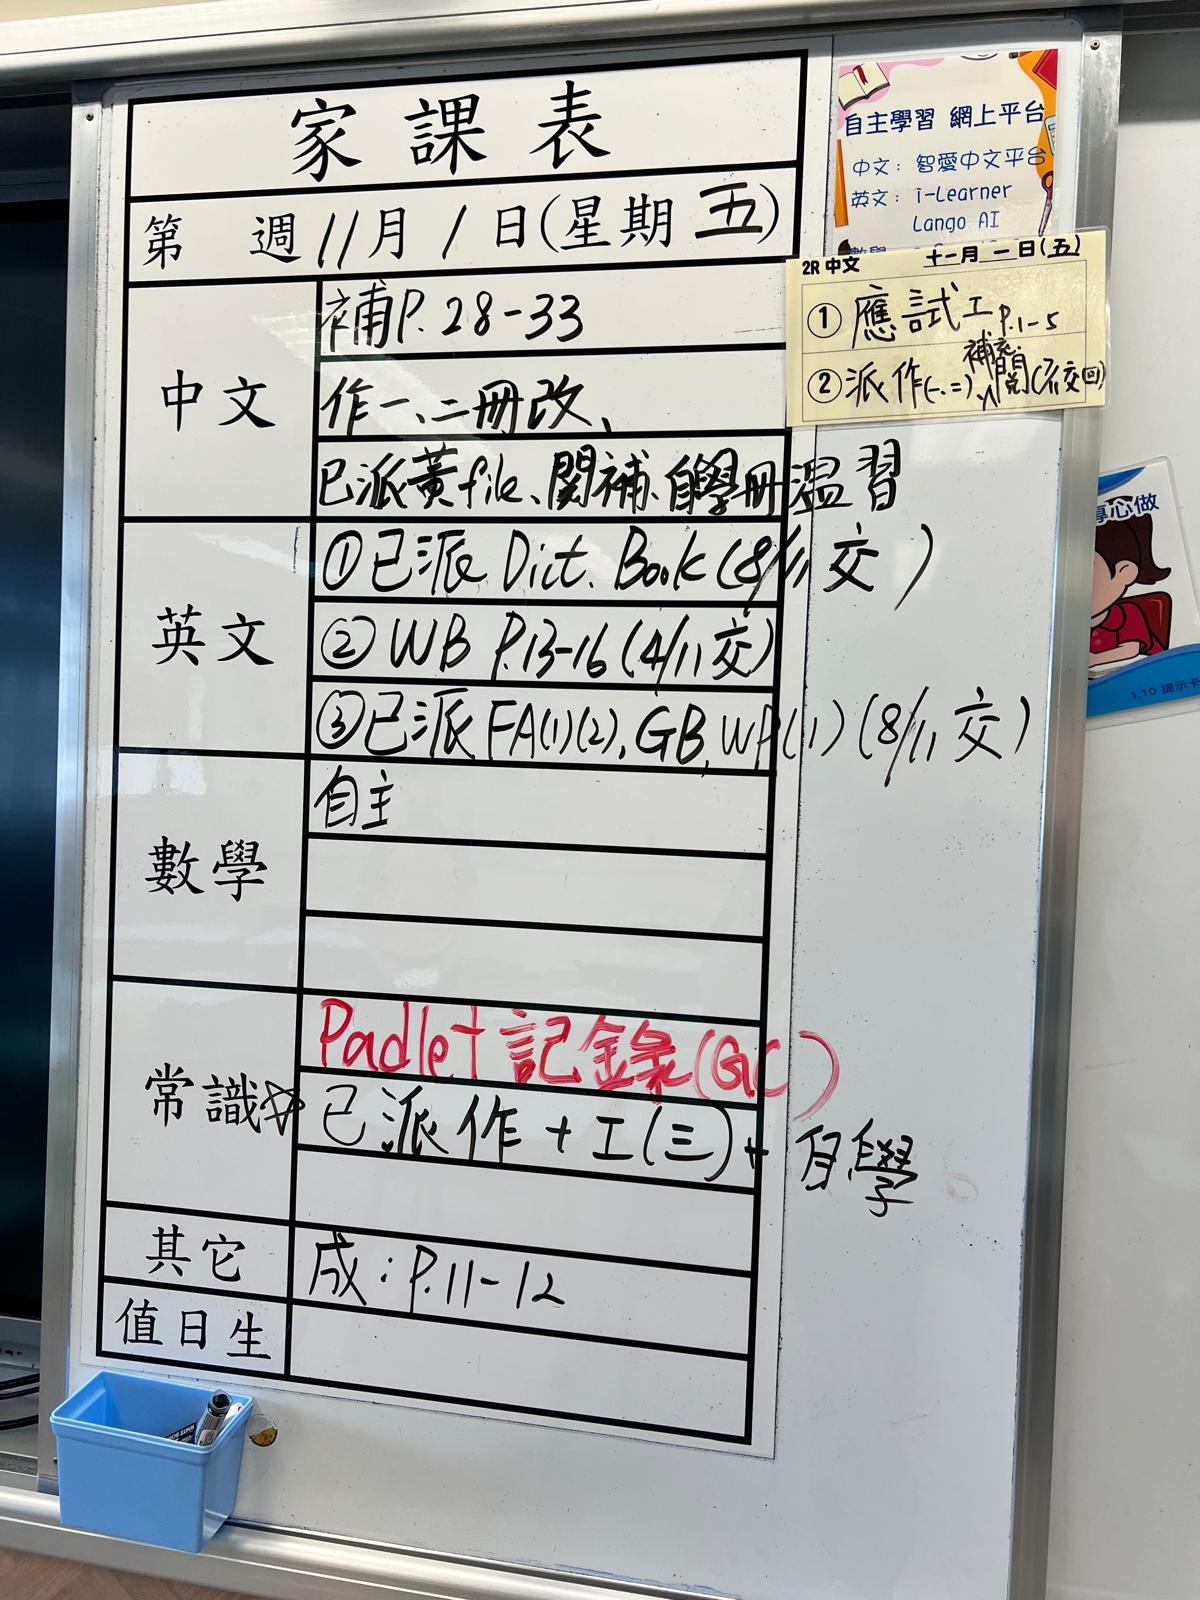 家課表
第 週 11月1日(星期五)
中文
補P.28-33
作一、二冊改、
已派黃file、閱補、自學冊溫習
英文
①已派 Dict. Book (8/11 交)
②WB P.13-16 (4/11 交)
③已派 FA(1)(2), GB, WP(1) (8/11 交)
數學
自主
常識☆
Padlet 記錄(GC)
已派作+工(三)+自學
其它
成:P.11-12
值日生
自主學習 網上平台
中文: 智愛中文平台
英文: i-Learner
Lango AI
2R 中文 十一月 一日(五)
①應試工 P.1-5
②派作(一、二)、補充、閱(不交回)
專心做
1.10 提示卡